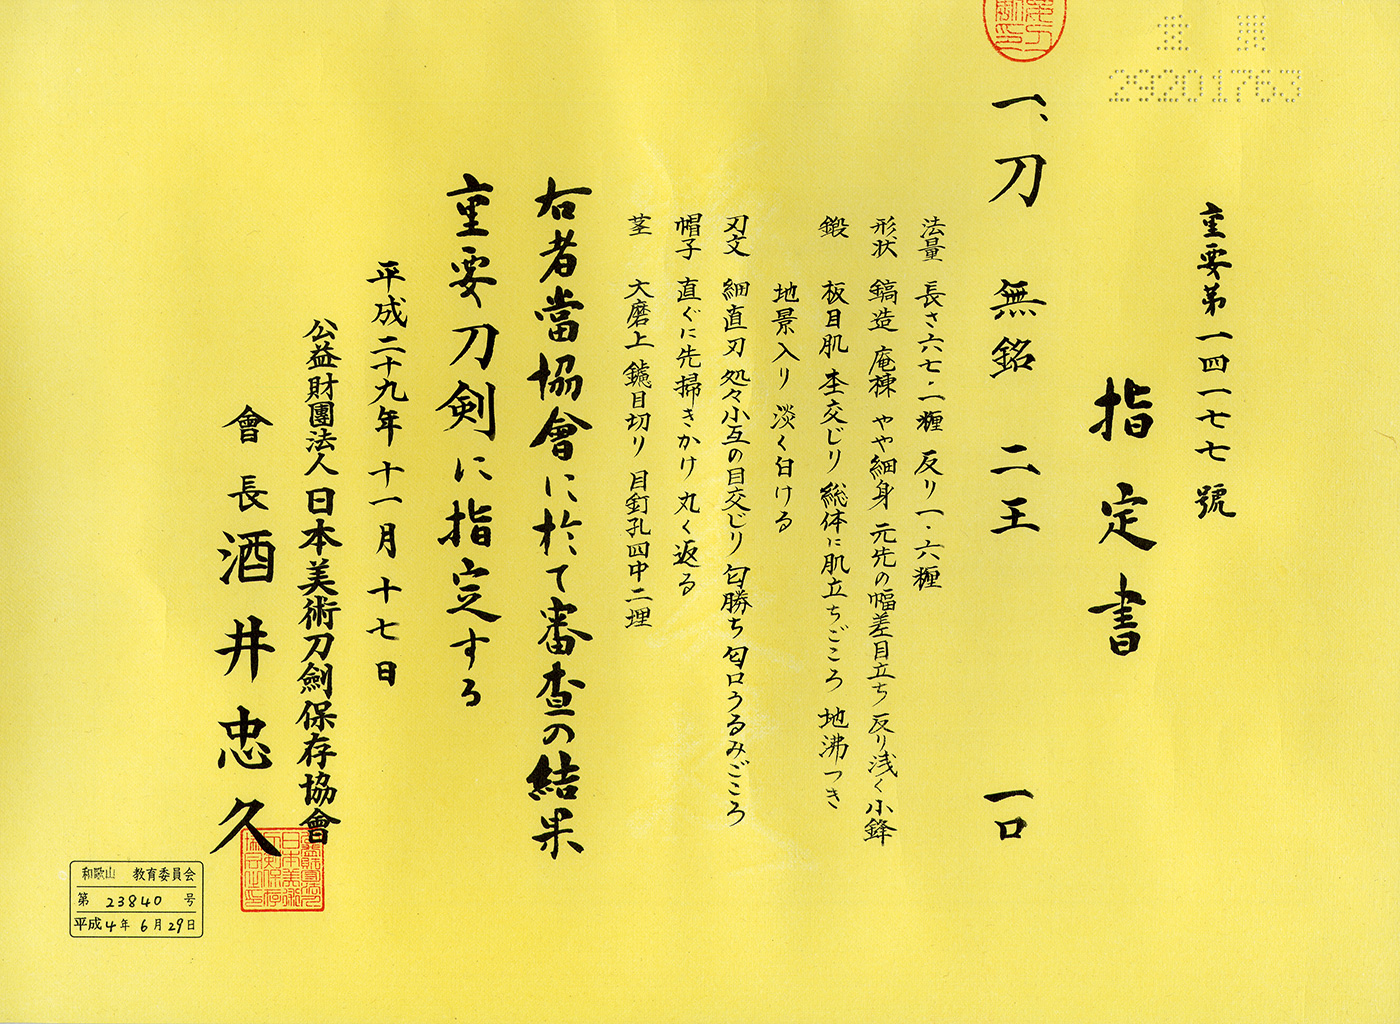 29201763
重要第一四一七七號
指定書
一、刀 無銘 二王 一口
法量 長さ六七・二糎 反り一・六糎
形状 鎬造 庵棟 やや細身 元先の幅差目立ち 反り浅く 小鋒
鍛 板目肌 杢交じり 総体に肌立ちごころ 地沸つき
地景入り 淡く白ける
刃文 細直刃 処々小互の目交じり 匂勝ち 匂口うるみごころ
帽子 直ぐに先掃きかけ 丸く返る
茎 大磨上 鑢目切り 目釘孔四中二埋
右者當協會に於て審査の結果
重要刀剣に指定する
平成二十九年十一月十七日
公益財團法人日本美術刀劍保存協會
會長 酒井忠久
和歌山 教育委員会
第 23840 号
平成4年6月29日